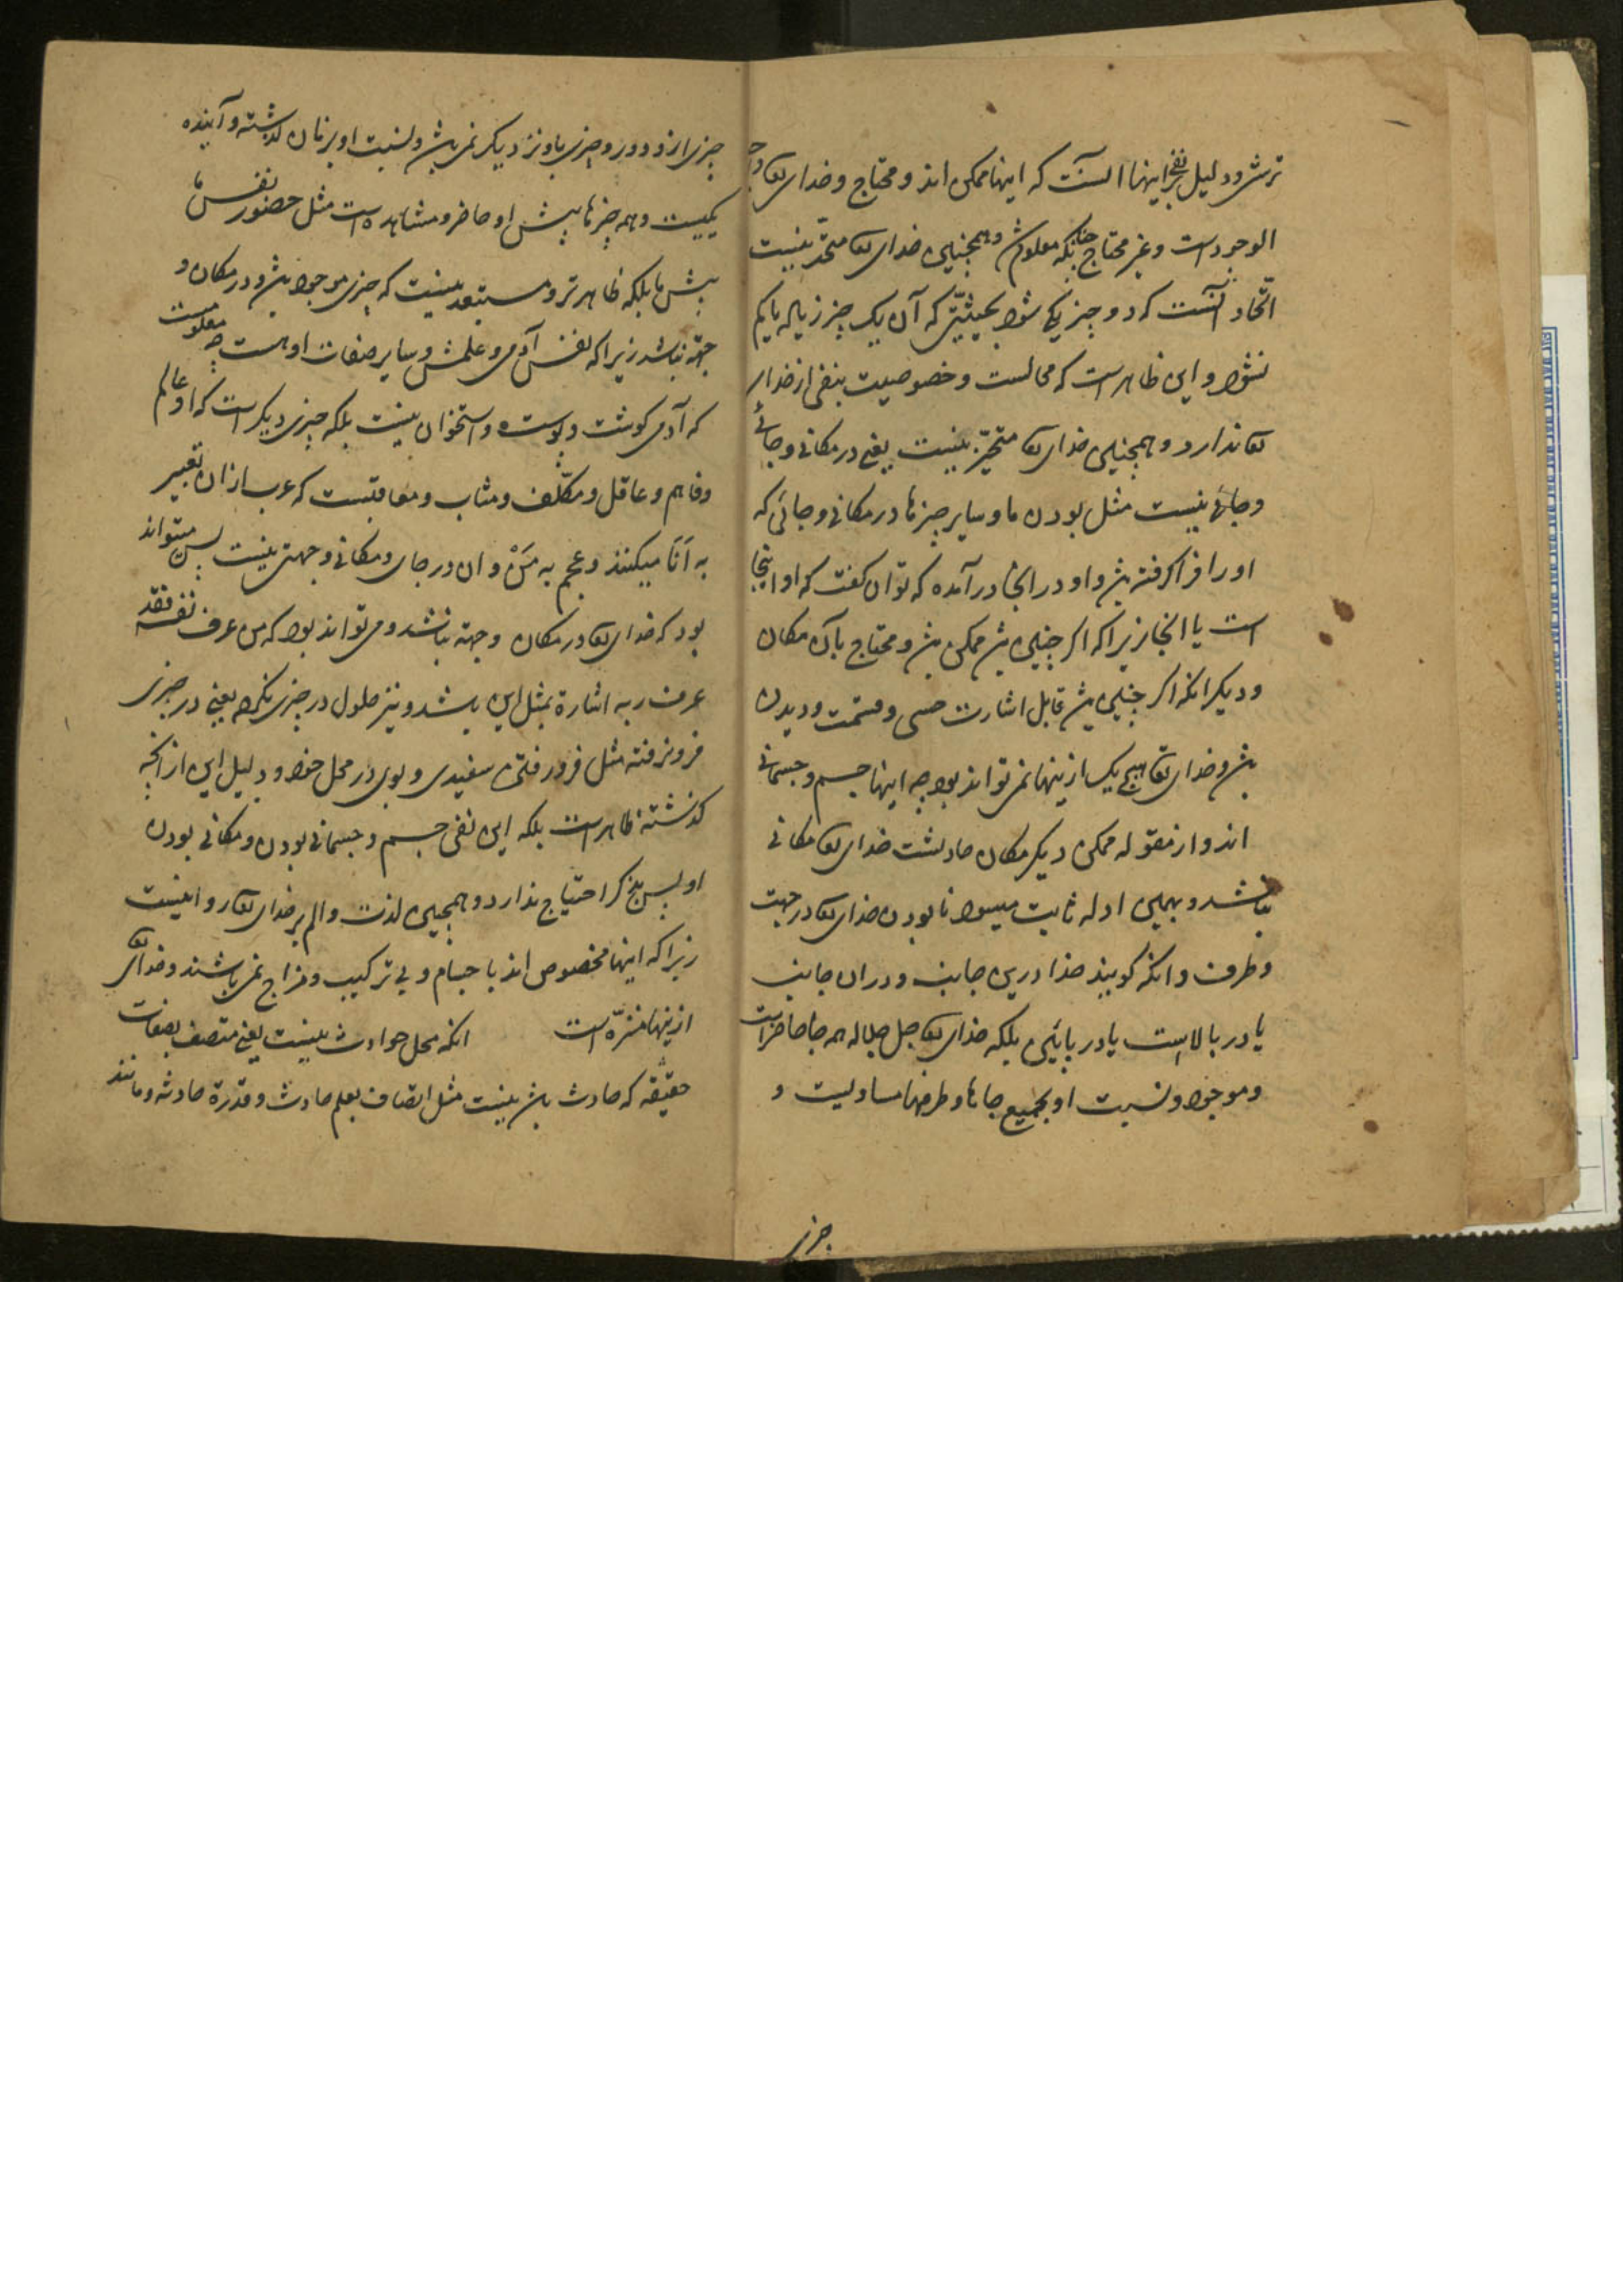 ترش و دلیل نفی اینها آنست که اینها ممکن اند و محتاج و خدای تعا واجب
الوجود است و غیر محتاج چنانکه معلوم شد و همچنین خدای تعا متحد نیست
اتحاد آنست که دو چیز یکی شود بحیثیتی که آن یک چیز زیاده یا کم
نشود و این ظاهر است که محالست و خصوصیت بنفی از خدای
تعا ندارد و همچنین خدای تعا متحیّز نیست یعنی در مکانی و جائی
و جائی نیست مثل بودن ما و سایر چیزها در مکانی و جائی که
او را فرا گرفته باشد و او در انجا در آمده که توان گفت که او اینجا
است یا انجا زیرا که اگر چنین باشد ممکن باشد و محتاج بآن مکان
و دیگر انکه اگر چنین باشد قابل اشارت حسی و قسمت و دیدن
باشد و خدای تعا هیچ یک ازینها نمی تواند بود چه اینها جسم و جسمانی
اند و از مقوله ممکن دیگر مکان حادثست خدای تعا مکانی
نباشد و بهمین ادله ثابت میشود نابودن خدای تعا در جهت
و طرف و انکه گویند خدا درین جانب و دران جانب
یا در بالاست یا در پائین بلکه خدای تعا جل جلاله همه جا حاضر است
و موجود و نسبت او بجمیع جاها و طرفها مساویست و
چیزی
چیزی ازو دور و چیزی باو نزدیکتر نمی باشد و نسبت او بزمان گذشته و آینده
یکیست و همه چیزها پیش او حاضر و مشاهد است مثل حضور نفس ما
پیش ما بلکه ظاهرتر و مستبعد نیست که چیزی موجود باشد و در مکان و
جهة نباشد زیرا که نفس آدمی و علمش و سایر صفات او هست چه معلومست
که آدمی گوشت و پوست و استخوان نیست بلکه چیزی دیگر است که او عالم
و فاهم و عاقل و مکلّف و مثاب و معاقبست که عرب ازان تعبیر
به اَنَا میکنند و عجم به مَنْ و ان در جای و مکانی و جهتی نیست پس میتواند
بود که خدای تعا در مکان و جهة نباشد و می تواند بود که من عرف نفسه فقد
عرف ربه اشارة بمثل این باشد و نیز حلول در چیزی نکرده یعنی در چیزی
فرو نرفته مثل فرو رفتن سفیدی و بوی در محل خود و دلیل این از انچه
گذشته ظاهر است بلکه این نفی جسم و جسمانی بودن و مکانی بودن
او پس بذکر احتیاج ندارد و همچنین لذت و الم بر خدای تعا روا نیست
زیرا که اینها مخصوص اند باجسام و بی ترکیب و مزاج نمی باشند و خدای تعا
ازینها منزّه است انکه محل حوادث نیست یعنی متصف بصفات
حقیقه که حادث باشد نیست مثل اتصاف بعلم حادث و قدرة حادثه و مانند